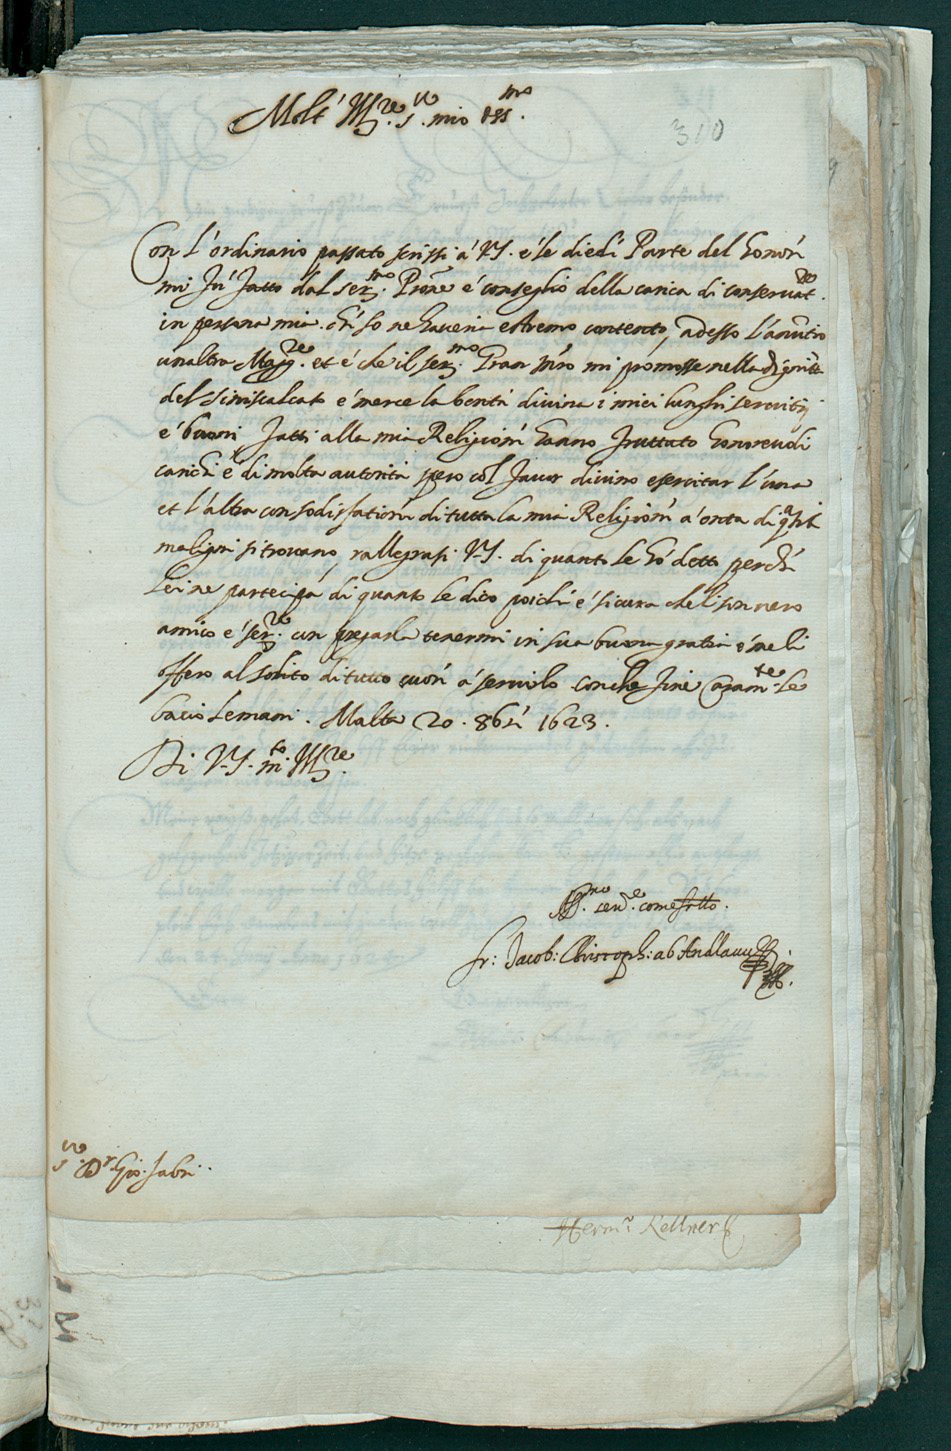 Molt' Ill.re S.r mio oss.mo
310
Con l'ordinario passato scrissi à V.S. e le diedi Parte del honor
mi fù fatto dal ser.mo Prone é conseglio della carica di conservat.re
in persona mia. ch' só ne haveria estremo contento, adesso l'
un altra Magg.re et é che il ser.mo Gran Mro mi promosse nella dignità
del siniscalcato é merce la bontà divina i miei lunghi servitij
é buoni fatti alla mia Religion hanno fruttato honorevoli
carichi é di molta autorità spero col favor divino esercitar l'una
et l'altra con sodisfation di tutta la mia Religion a' onta di q.ti
maligni si trovano, rallegrasi V.S. di quanto le hó detto perchè
lei ne partecipa di quanto le dico poiche é sicura che li son vero
amico é ser.re con pregarla tenermi in sua buona gratia é me li
offero al solito di tutto cuor a' servirlo conche fine caram.te le
bacio le mani. Malta 20. 8bri 1623.
Di V.S. m.to Ill.re
Aff.mo ser.e come frtto.
fr: Jacob: Christoph: ab Andlauw
S.r D.r Gio. fabri.
Herm. Kellner